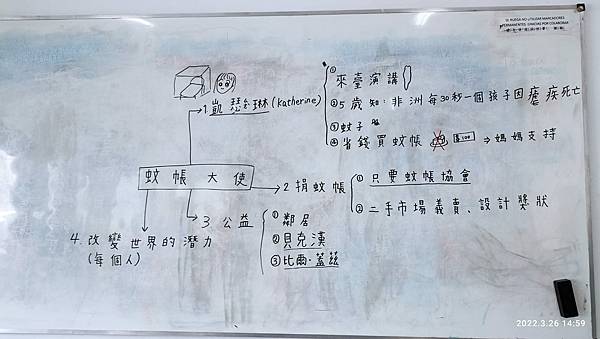 SE RUEGA NO UTILIZAR MARCADORES
PERMANENTES GRACIAS POR COLABORAR
1. 凱瑟琳(Katherine)
① 來臺演講
② 5歲知：非洲每30秒一個孩子因瘧疾死亡
③ 蚊子
④ 省錢買蚊帳 $100 ⇒媽媽支持
蚊帳大使
2 捐蚊帳
① 只要蚊帳協會
② 二手市場義賣、設計獎狀
3. 公益
① 鄰居
② 貝克漢
③ 比爾·蓋茲
4. 改變世界的潛力
(每個人)
2022.3.26 14:59